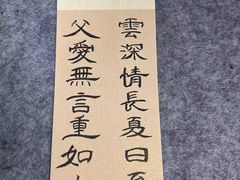 雲深情長夏日
父愛無言重如